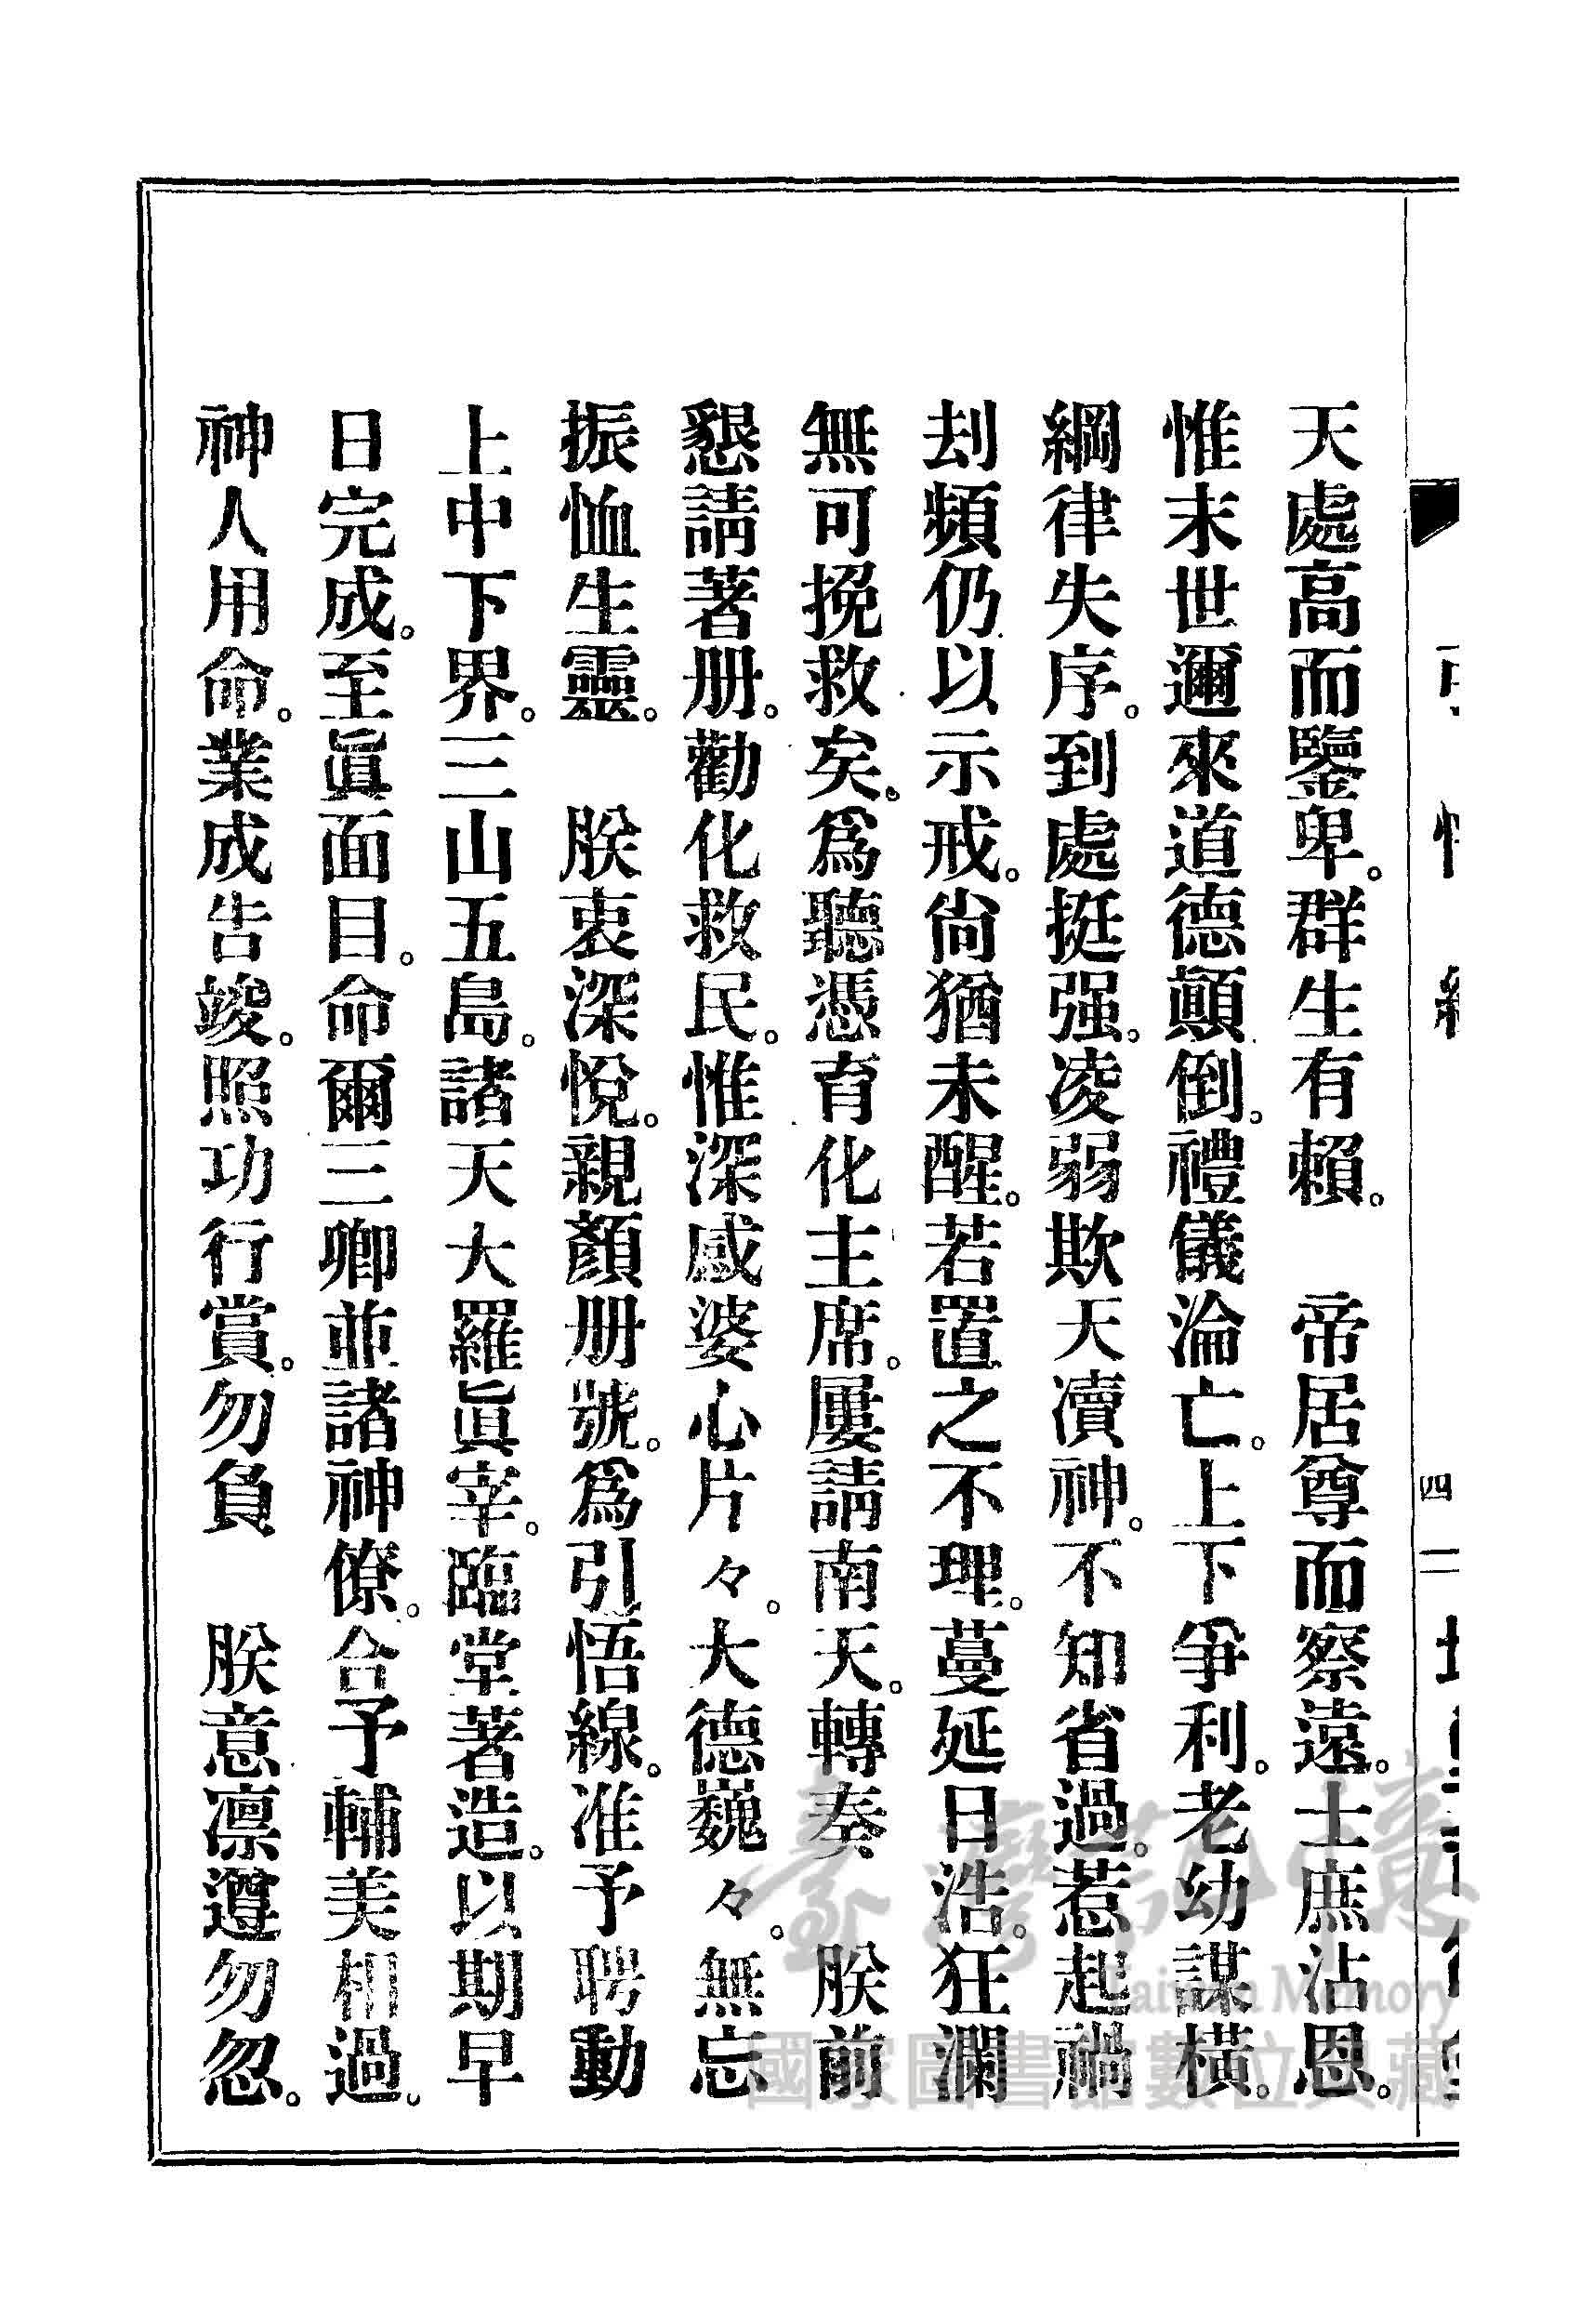 四二
天處高而鑒卑。群生有賴。　帝居尊而察遠。士庶沾恩。
惟末世邇來道德顚倒。禮儀淪亡。上下爭利。老幼謀橫。
綱律失序。到處挺强。凌弱欺天瀆神。不知省過。惹起禍
刦頻仍以示戒。尙猶未醒。若置之不理。蔓延日浩。狂瀾
無可挽救矣。爲聽憑育化主席。屢請南天。轉奏　朕前
懇請著册。勸化救民。惟深感婆心片々。大德巍々。無忘
振恤生靈。　朕衷深悅。親顏册號。爲引悟線。准予聘動
上中下界。三山五島。諸天大羅眞宰。臨堂著造。以期早
日完成。至眞面目。命爾三卿並諸神僚。合予輔美相過。
神人用命。業成告竣。照功行賞。勿負　朕意凛遵勿忽。
臺灣記憶
Taiwan Memory
國家圖書館數位典藏